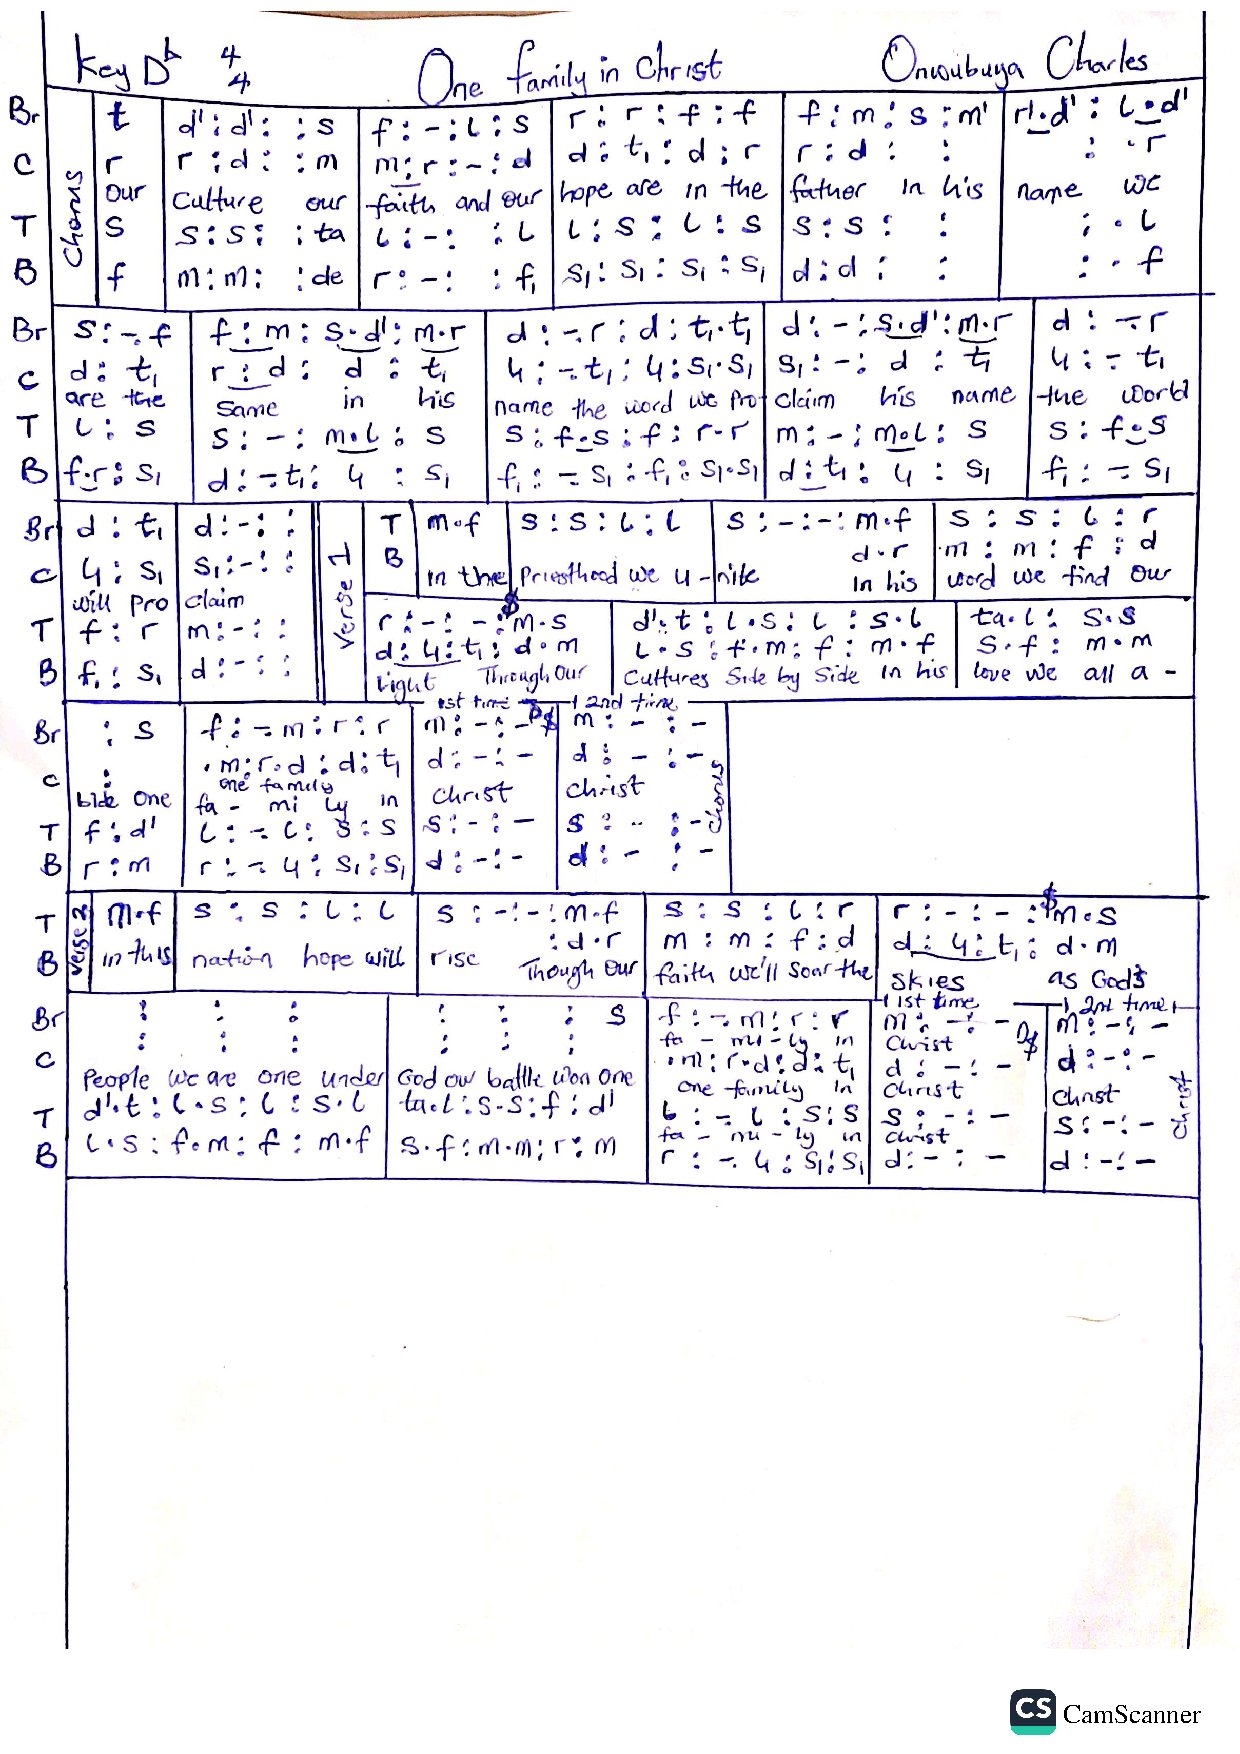 Key Db 4/4 One family in Christ Onwubuya Charles
Chorus
Br t | d' : d' : : s | f : - : l : s | r : r : f : f | f : m : s : m' | r' . d' : l . d'
C r | r : d : : m | m : r : - : d | d : t₁ : d : r | r : d : : | : . r
our | Culture our | faith and our | hope are in the | father in his | name we
T s | s : s : : ta | l : - : : l | l : s : l : s | s : s : : | : . l
B f | m : m : : de | r : - : : f₁ | s₁ : s₁ : s₁ : s₁ | d : d : : | : . f
Br s : - . f | f : m : s . d' : m . r | d : - . r : d : t₁ . t₁ | d : - : s . d' : m . r | d : - . r
C d : t₁ | r : d : d : t₁ | l₁ : - . t₁ : l₁ : s₁ . s₁ | s₁ : - : d : t₁ | l₁ : - . t₁
are the | same in his | name the word we pro | claim his name | the world
T l : s | s : - : m . l : s | s : f . s : f : r . r | m : - : m . l : s | s : f . s
B f . r : s₁ | d : - . t₁ : l₁ : s₁ | f₁ : - . s₁ : f₁ : s₁ . s₁ | d : t₁ : l₁ : s₁ | f₁ : - . s₁
Br d : t₁ | d : - : :
C l₁ : s₁ | s₁ : - : :
will pro | claim
T f : r | m : - : :
B f₁ : s₁ | d : - : :
Verse 1
T m . f | s : s : l : l | s : - : - : m . f | s : s : l : r
B d . r | m : m : f : d
in the | Priesthood we u - nite in his | word we find our
r : - : - : m . s | d' . t : l . s : l : s . l | ta . l : s . s
d : l₁ : t₁ : d . m | l . s : f . m : f : m . f | s . f : m . m
Light Through our | Cultures side by side in his | love we all a -
1st time 2nd time
Br : s | f : - . m : r : r | m : - : - | m : - : -
C : | . m : r . d : d : t₁ | d : - : - | d : - : -
one family
bide one | fa - mi ly in | Christ | christ
T f : d' | l : - . l : s : s | s : - : - | s : - : -
B r : m | r : - . l₁ : s₁ : s₁ | d : - : - | d : - : -
Chorus
Verse 2
T m . f | s : s : l : l | s : - : - : m . f | s : s : l : r | r : - : - : m . s
B : d . r | m : m : f : d | d : l₁ : t₁ : d . m
in this | nation hope will | rise Though our | faith we'll soar the | skies as God's
1st time 2nd time
Br : : : | : : : s | f : - . m : r : r | m : - : - | m : - : -
fa - mi - ly in | Christ
C : : : | : : : | . m : r . d : d : t₁ | d : - : - | d : - : -
People we are one under | God our battle won one | one family in | Christ | Christ
T d' . t : l . s : l : s . l | ta . l : s . s : f : d' | l : - . l : s : s | s : - : - | s : - : -
fa - mi - ly in | christ
B l . s : f . m : f : m . f | s . f : m . m : r : m | r : - . l₁ : s₁ : s₁ | d : - : - | d : - : -
Christ
CS CamScanner